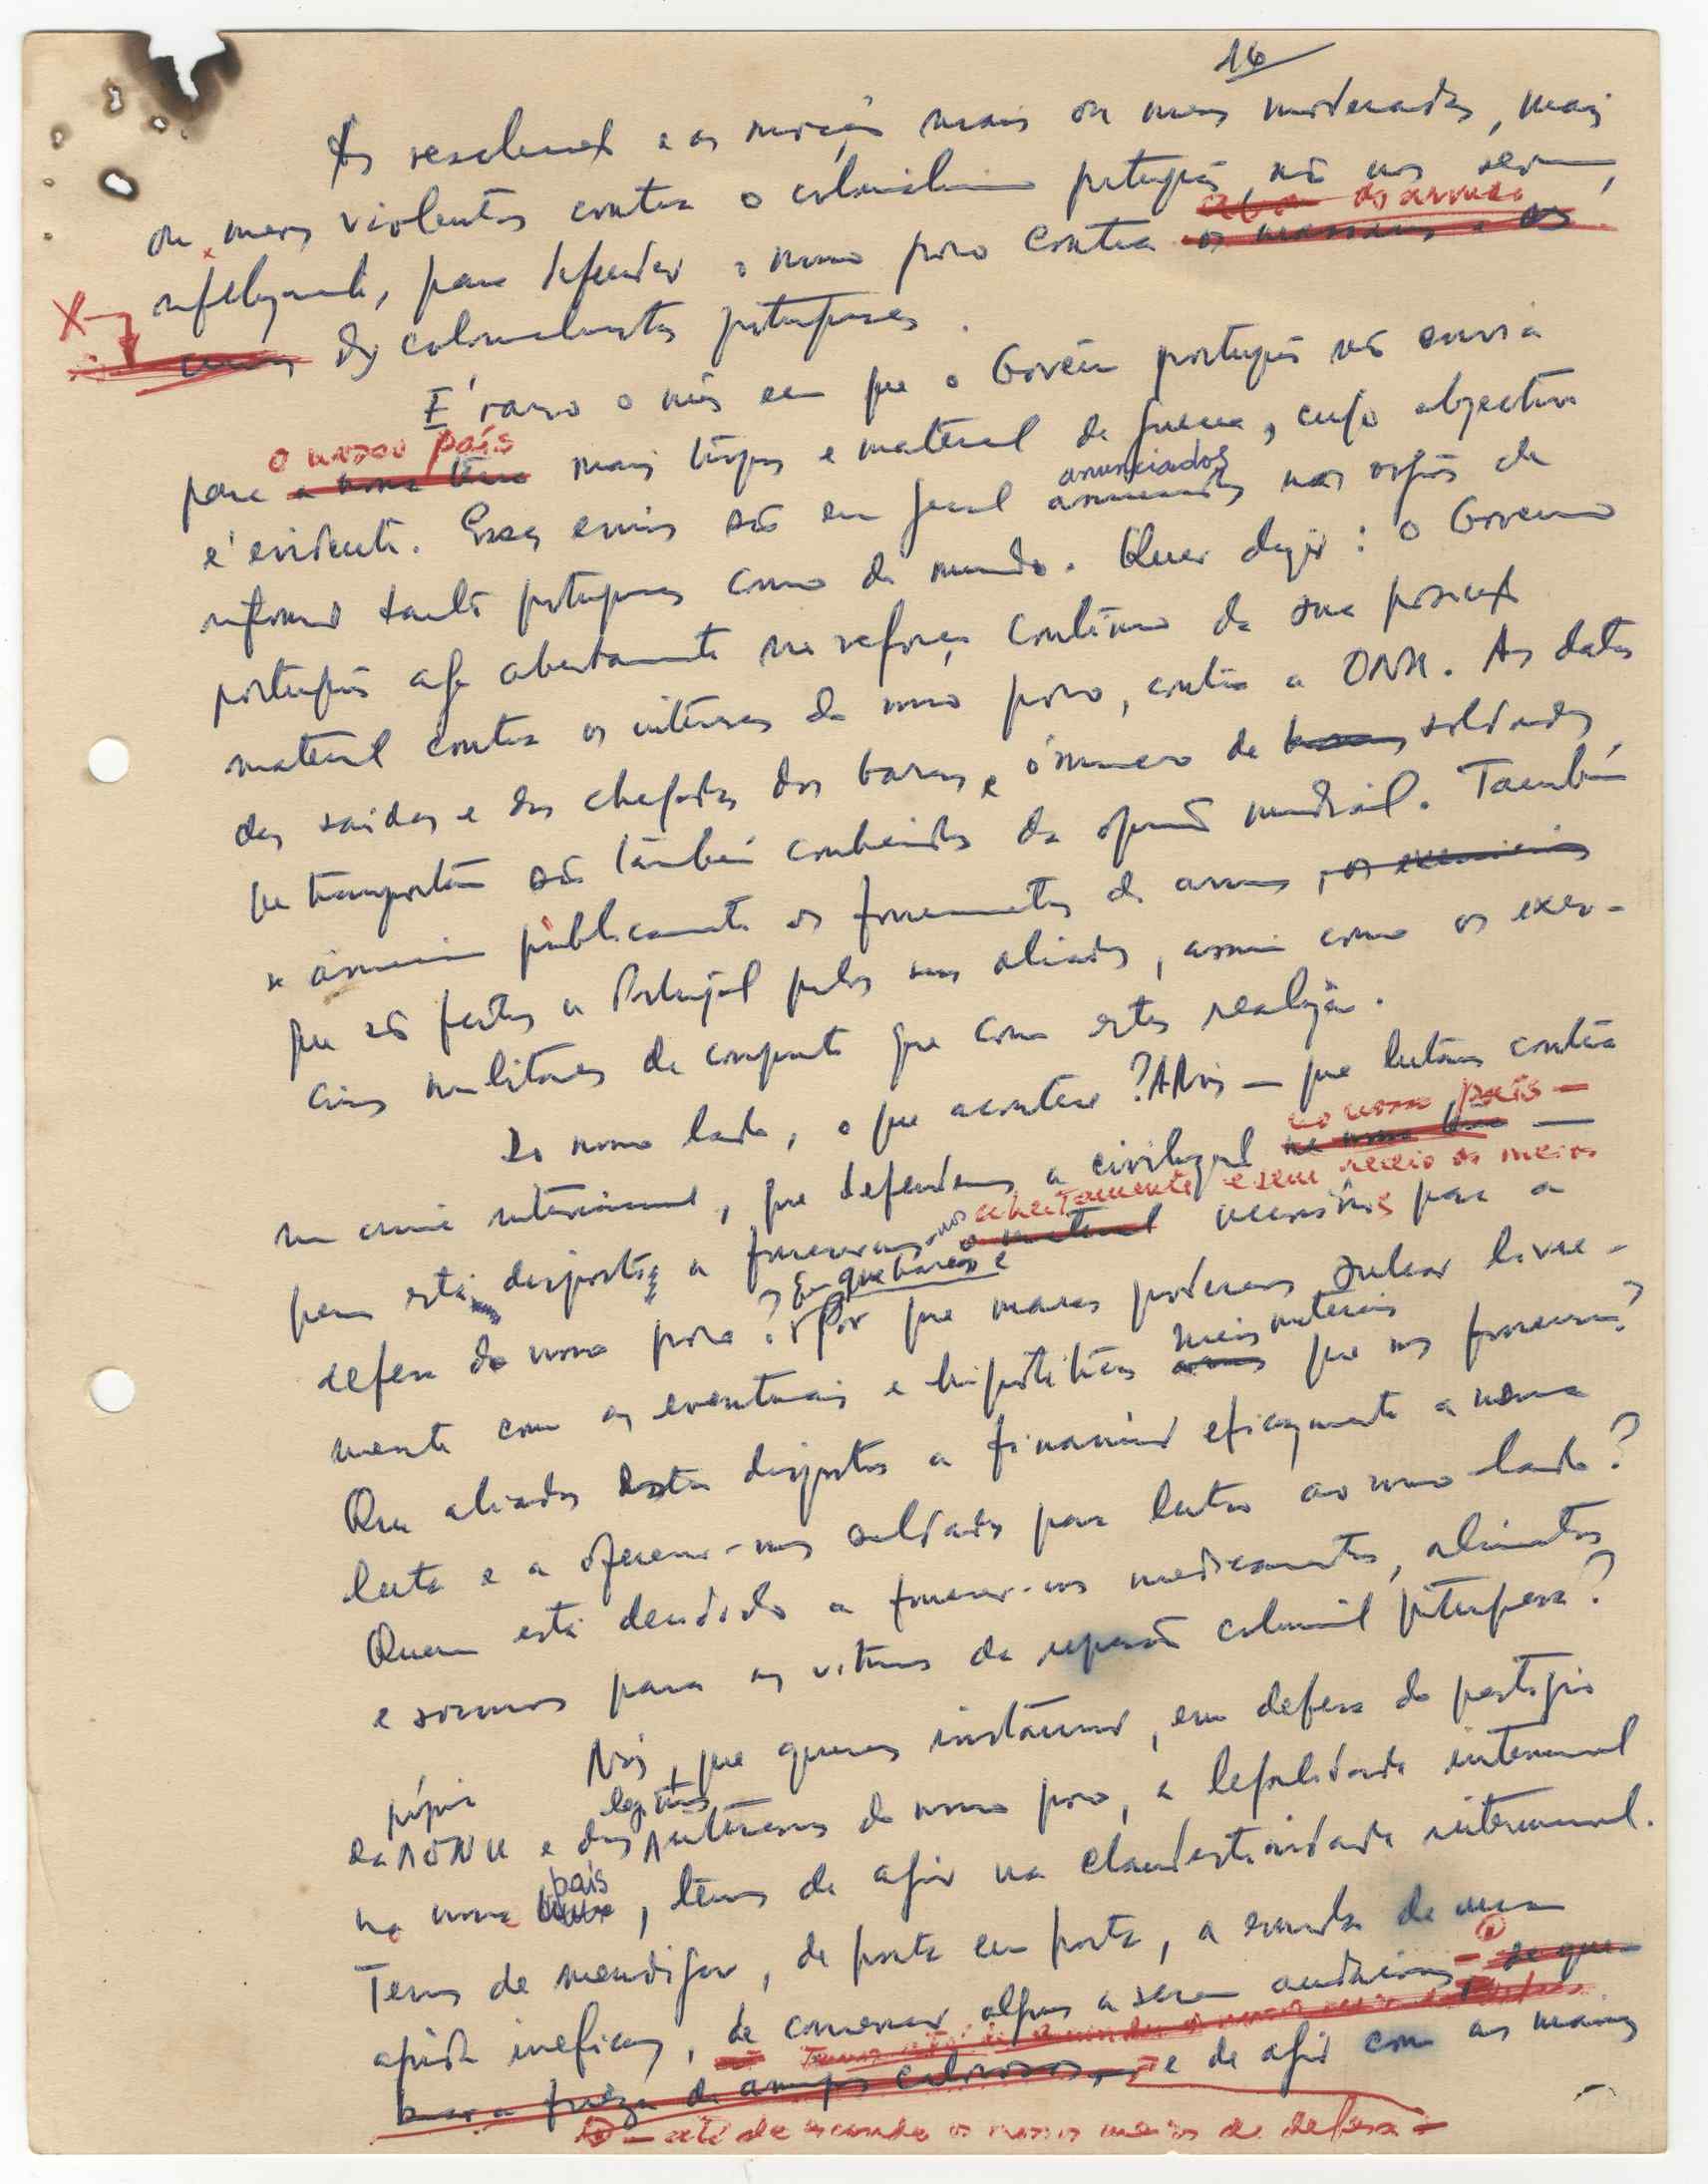 16
As resoluções e as moções mais ou menos moderadas, mais
ou menos violentas contra o colonialismo português não nos servem,
infelizmente, para defender o nosso povo contra os massacres e os
as armas
X
dos colonialistas portugueses.
É raro o mês em que o Govêrno português não envia
o nosso país
para a nossa terra mais tropas e material de guerra, cujo objectivo
anunciados
é evidente. Esses envios são em geral anunciados nos orgãos de
informação tanto portugueses como do mundo. Quer dizer: o Governo
português age abertamente no reforço contínuo da sua posição
material contra os interesses do nosso povo, contra a ONU. As datas
das saídas e das chegadas dos barcos, e o número de soldados
que transportam são também conhecidos da opinião mundial. Também
se anunciam públicamente os fornecimentos de armas, os exercícios
que são feitos a Portugal pelos seus aliados, assim como os exer-
cícios militares de conjunto que com estes realizam.
Do nosso lado, o que acontece? A Nós — que lutamos contra
no nosso país —
um crime internacional, que defendemos a civilização na nossa terra —
abertamente e sem receio os meios
quem está disposto a fornecer-nos o material necessários para a
Em que barcos e
defesa do nosso povo? Por que mares podemos sulcar livre-
meios materiais
mente com as eventuais e hipotéticas armas que nos forneceram?
Que aliados estão dispostos a financiar eficazmente a nossa
luta e a oferecer-nos soldados para lutar ao nosso lado?
Quem está decidido a fornecer-nos medicamentos, alimentos
e socorros para as vítimas da repressão colonial portuguesa?
Nós, que queremos instaurar, em defesa do prestígio
própria legítimos
da ONU e dos interesses do nosso povo, a legalidade internacional
país
no nosso, temos de agir na clandestinidade internacional.
Temos de mendigar, de porta em porta, a esmola de uma
ajuda ineficaz, de convencer alguns a serem audaciosos, de que-
brar a frieza de amigos calorosos, e de agir com as maiores
— até de esconder os nossos meios de defesa —